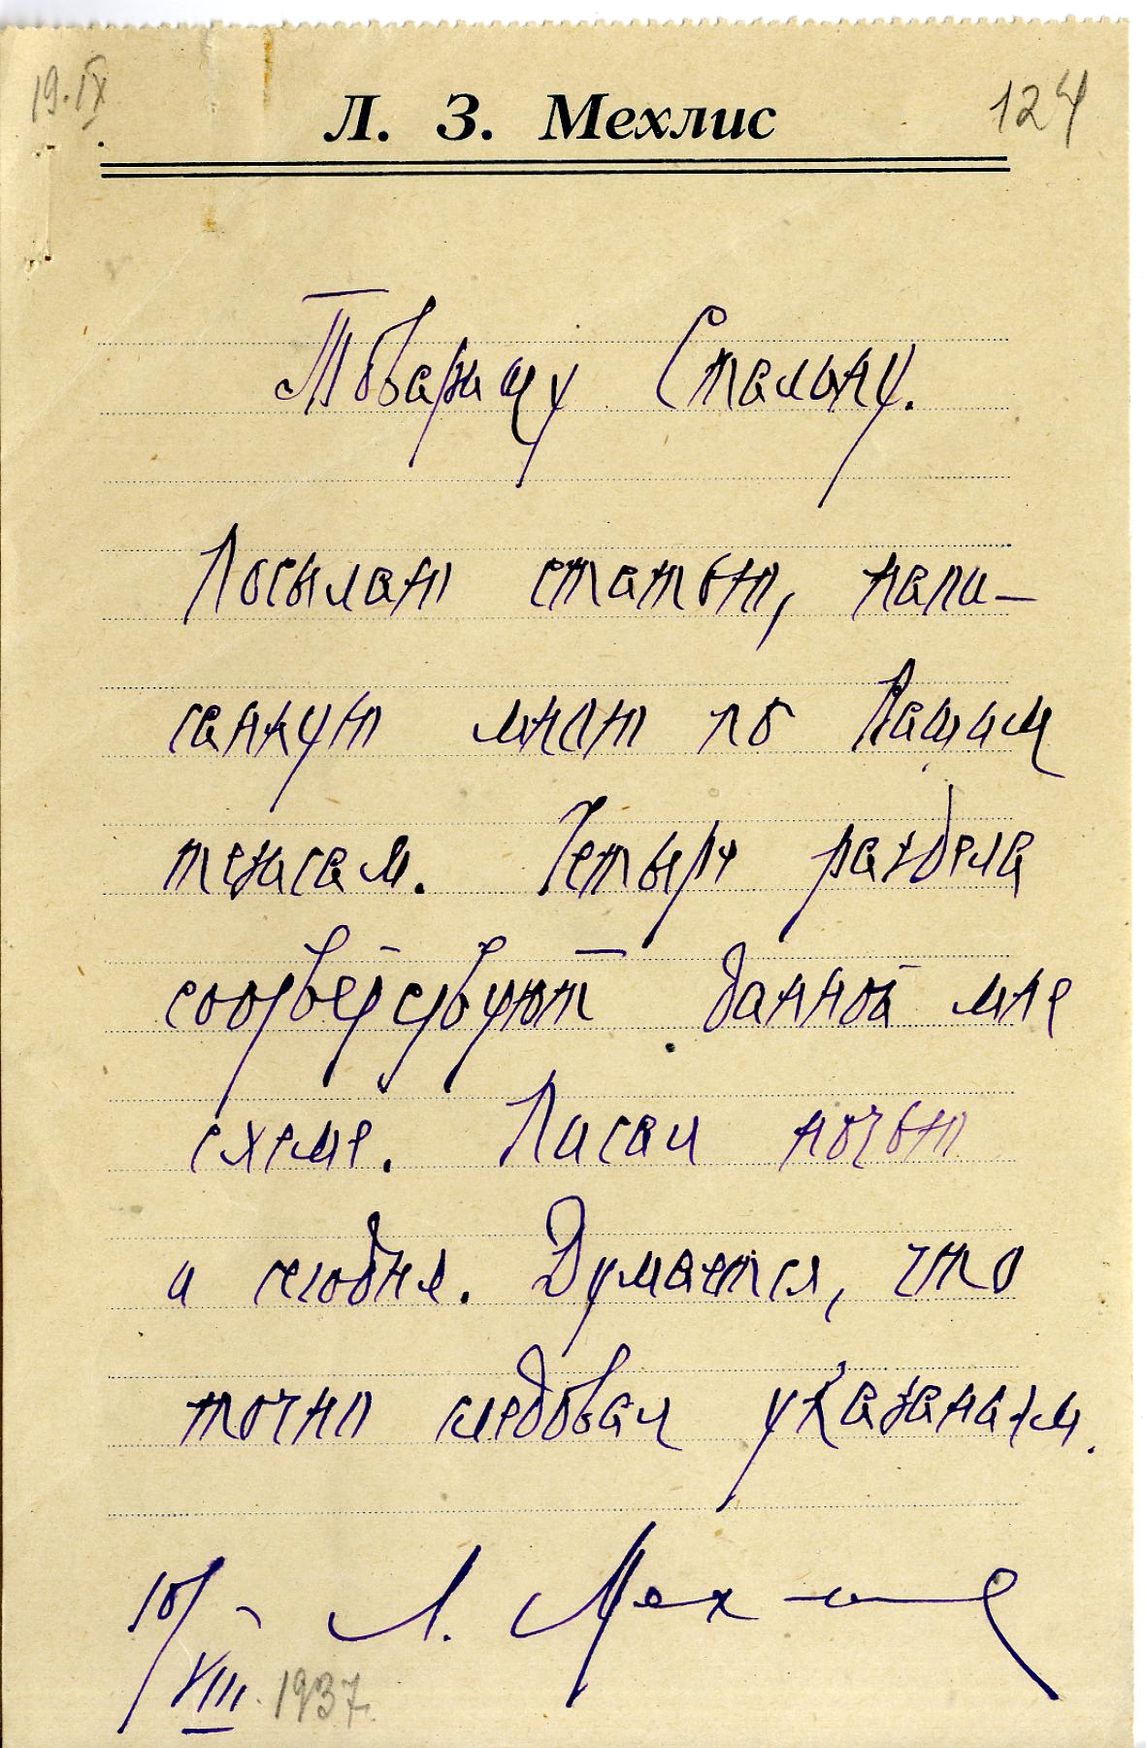 19.IX
124
Л. З. Мехлис
Товарищу Сталину.
Посылаю статью, напи-
санную мною по Вашим
тезисам. Четыре раздела
соответствуют данной мне
схеме. Писал ночью
и сегодня. Думается, что
точно следовал указаниям.
10/VIII 1937.
Л. Мехлис